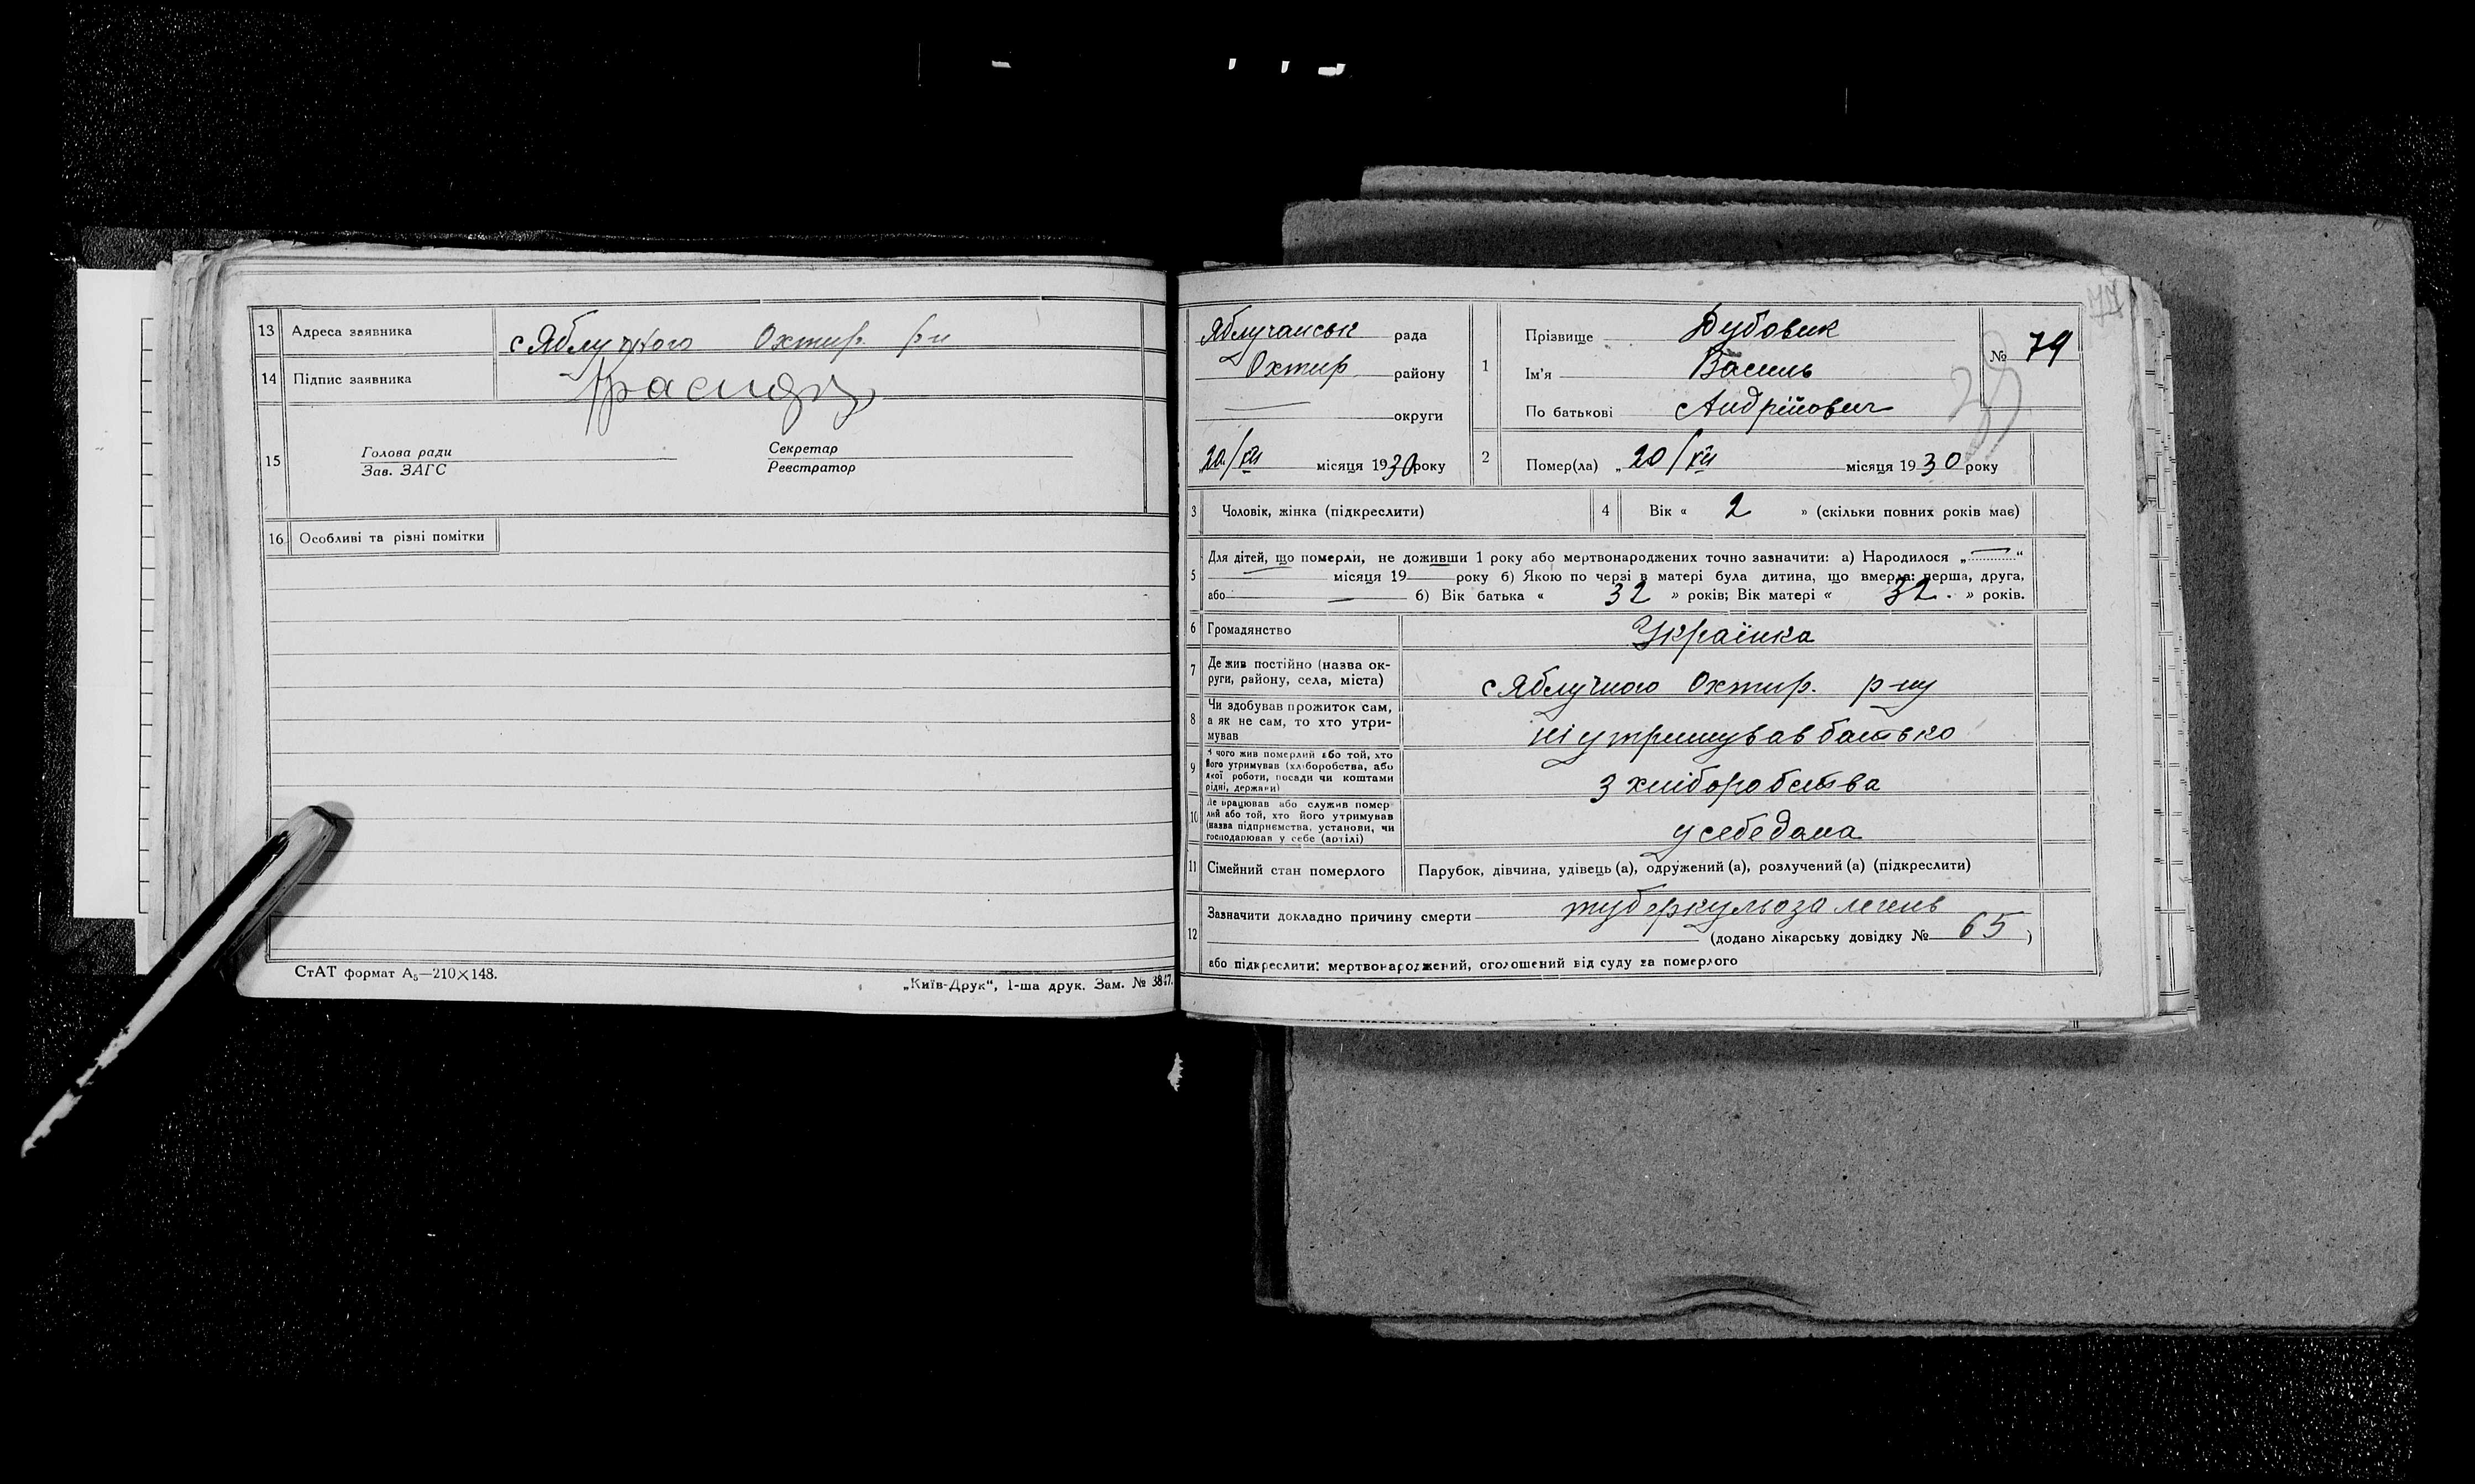 13 Адреса заявника с Яблучного Охтир. р-н
14 Підпис заявника
15 Голова ради Секретар
Зав. ЗАГС Реєстратор
16 Особливі та різні помітки
СтАТ формат А₅—210×148.
„Київ-Друк“, 1-ша друк. Зам. № 3847.
77
Яблучанськ рада
Охтир району
округи
20/XII місяця 1930 року
1 Прізвище Дубовик
Ім'я Василь
По батькові Андрійович
№ 79
2 Помер(ла) „ 20/XII місяця 1930 року
3 Чоловік, жінка (підкреслити) 4 Вік « 2 » (скільки повних років має)
5 Для дітей, що померли, не доживши 1 року або мертвонароджених точно зазначити: а) Народилося „ — “
— місяця 19 — року б) Якою по черзі в матері була дитина, що вмерла: перша, друга,
або — б) Вік батька « 32 » років; Вік матері « 32. » років.
6 Громадянство Українка
7 Де жив постійно (назва округи, району, села, міста) с Яблучного Охтир. р-ну
8 Чи здобував прожиток сам,
а як не сам, то хто утри-
мував ні утримував батько
9 З чого жив померлий або той, хто
його утримував (хліборобства, або
якої роботи, посади чи коштами
рідні, держави) з хліборобства
10 Де працював або служив помер-
лий або той, хто його утримував
(назва підприємства, установи, чи
господарював у себе (артілі) у себе дома
11 Сімейний стан померлого Парубок, дівчина, удівець (а), одружений (а), розлучений (а) (підкреслити)
12 Зазначити докладно причину смерти туберкульоза легень
(додано лікарську довідку № 65 )
або підкреслити: мертвонароджений, оголошений від суду за померлого